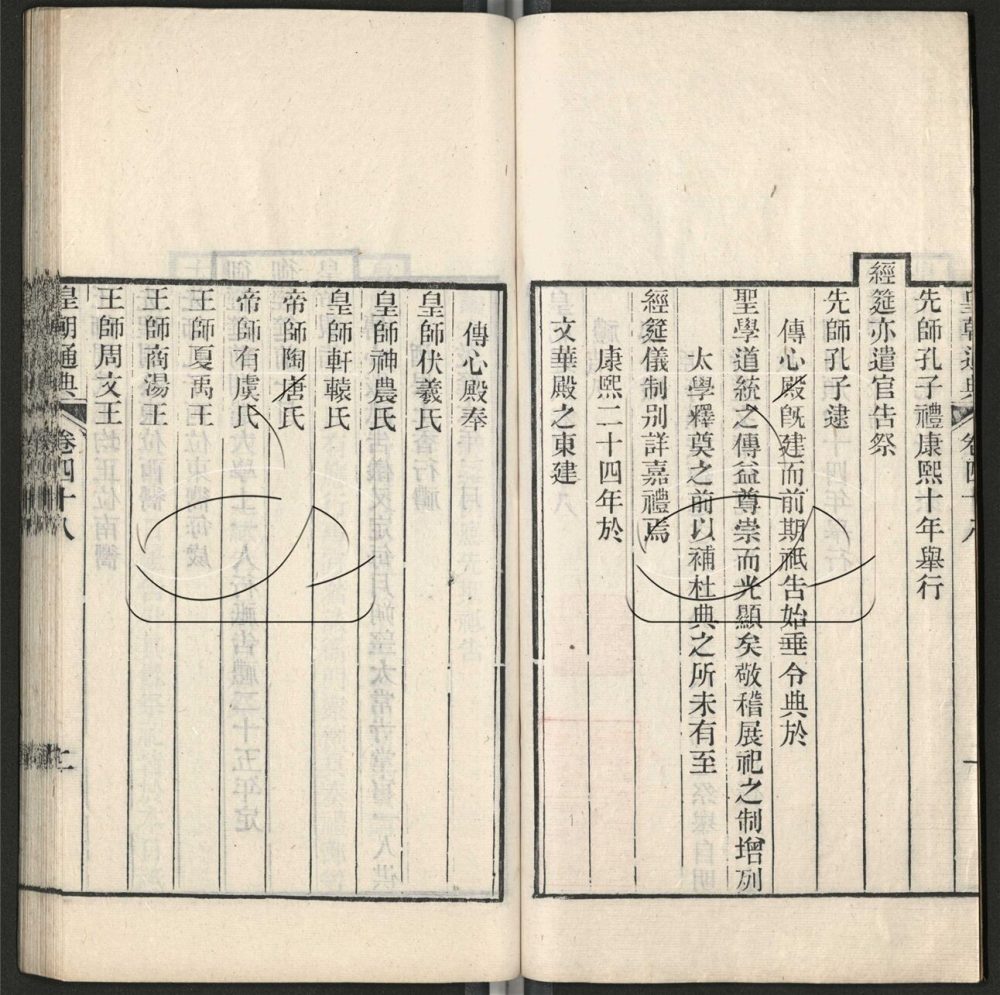 皇朝通典 卷四十八 一
先師孔子禮康熙十年舉行
經筵亦遣官告祭
先師孔子逮
傳心殿旣建而前期祗告始垂令典於
聖學道統之傳益尊崇而光顯矣敬稽展祀之制增列
太學釋奠之前以補杜典之所未有至
經筵儀制別詳嘉禮焉
康熙二十四年於
文華殿之東建
傳心殿奉
皇師伏羲氏
皇師神農氏
皇師軒轅氏
帝師陶唐氏
帝師有虞氏
王師夏禹王
王師商湯王
王師周文王
皇朝通典 卷四十八 二